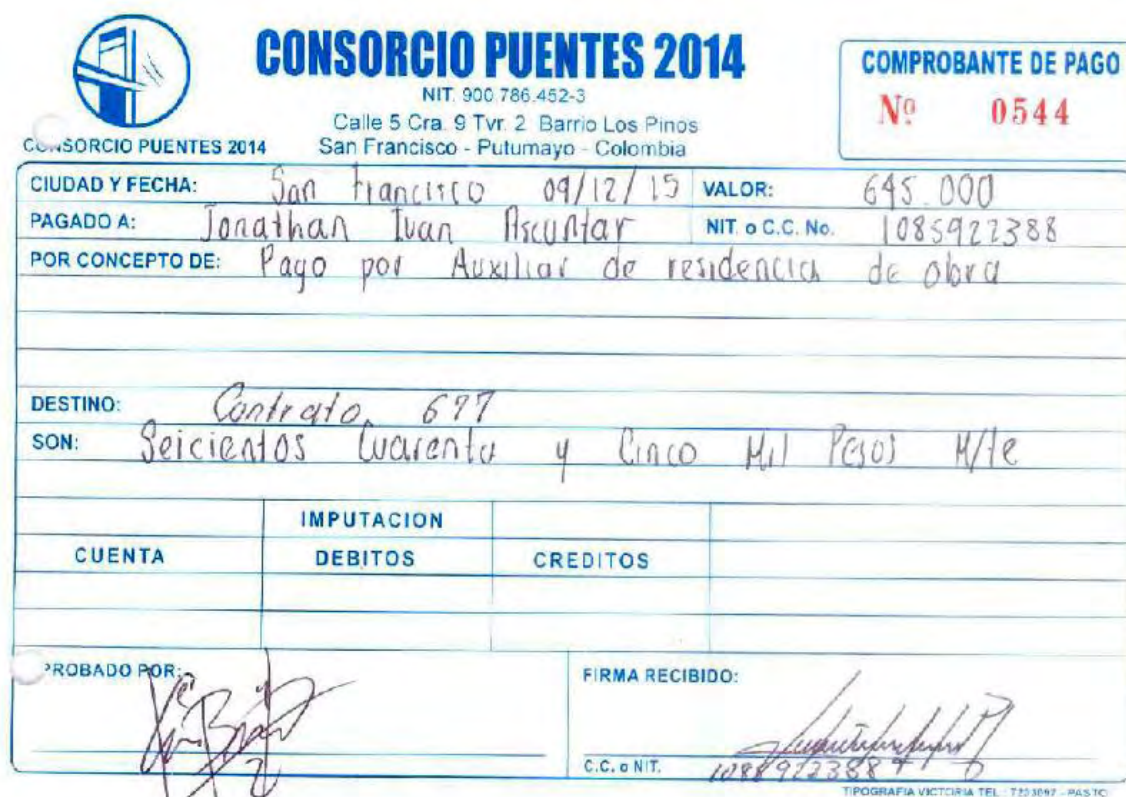 CONSORCIO PUENTES 2014
NIT. 900.786.452-3
Calle 5 Cra. 9 Tvr. 2 Barrio Los Pinos
San Francisco - Putumayo - Colombia
CONSORCIO PUENTES 2014
COMPROBANTE DE PAGO
Nº 0544
CIUDAD Y FECHA: San Francisco 09/12/15 VALOR: 645.000
PAGADO A: Jonathan Ivan Ascuntar NIT. o C.C. No. 1085922388
POR CONCEPTO DE: Pago por Auxiliar de residencia de obra
DESTINO: Contrato 677
SON: Seicientos Cuarenta y Cinco Mil Pesos M/te
IMPUTACION
CUENTA DEBITOS CREDITOS
PROBADO POR: FIRMA RECIBIDO:
C.C. o NIT.
TIPOGRAFIA VICTORIA TEL.: - PASTO